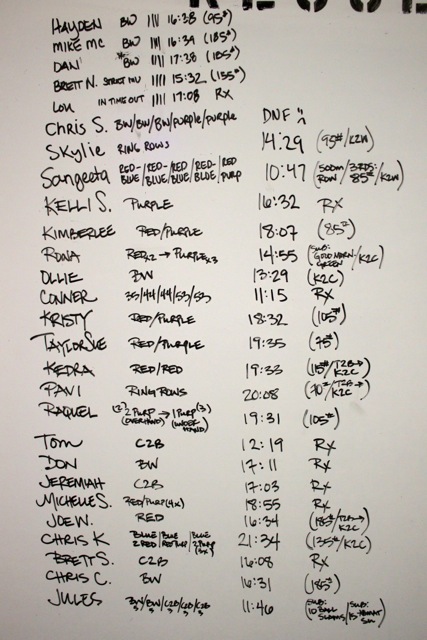 HAYDEN BW |||| 16:38 (95#)
MIKE MC BW |||| 16:34 (185#)
DAN BW |||| 17:38 (185#)
BRETT N. STRICT MU |||| 15:32 (155#)
LOU IN TIME OUT |||| 17:08 RX
CHRIS S. BW/BW/BW/PURPLE/PURPLE DNF
SKYLIE RING ROWS 14:29 (95#/K2W)
Sangeeta RED-/RED-/RED/RED-/RED 10:47 (500m/3RDS:
BLUE/BLUE/BLUE/BLUE/PURP ROW/85#/K2W)
KELLI S. PURPLE 16:32 RX
KIMBERLEE RED/PURPLE 18:07 (85#)
RONA REDx2 → PURPLEx3 14:55 (SUB: GOOD MORN/K2C)
OLLIE BW 13:29 (K2C)
CONNER 35/44/44/53/53 11:15 RX
KRISTY RED/PURPLE 18:32 (105#)
TAYLOR SUE RED/PURPLE 19:35 (75#)
KEDRA RED/RED 19:33 (115#/T2B→K2C)
PAVI RING ROWS 20:08 (70#/T2B→K2C)
RAQUEL (2) 2 PURP → 1 PURP (3) 19:31 (105#)
(OVERHAND) (UNDERHAND)
TOM C2B 12:19 RX
DON BW 17:11 RX
JEREMIAH C2B 17:03 RX
MICHELLE S. RED/PURP (4x) 18:55 RX
JOE W. RED 16:34 (185#/T2B→K2C)
CHRIS K BLUE/BLUE/BLUE 21:34 (135#/K2C)
2 RED/ 2 PURP
BRETT S. C2B 16:08 RX
CHRIS C. BW 16:31 (185#)
JULES BW/BW/C2B/C2B/C2B 11:46 (SUB: 10 BALL SLAMS/SUB: 15